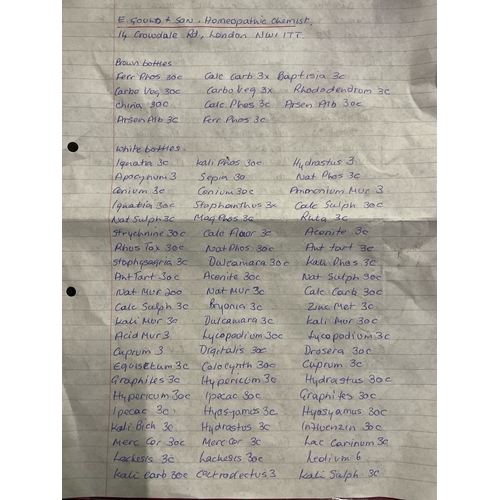 E. GOULD + SON. Homeopathic Chemist.
14 Crowdale Rd, London NW1 1TT.
Brown bottles
Ferr Phos 30c Calc Carb 3x Baptisia 3c
Carbo Veg 30c Carbo Veg 3x Rhododendrum 3c
China 30c Calc Phos 3c Arsen Alb 30c
Arsen Alb 3c Ferr Phos 3c
White bottles.
Ignatia 3c Kali Phos 30c Hydrastus 3
Apocynum 3 Sepia 30 Nat Phos 3c
Conium 3c Conium 30c Ammonium Mur 3
Ignatia 30c Stophanthus 3x Calc Sulph 30c
Nat Sulph 3c Mag Phos 3c Ruta 3c
Strychnine 30c Calc Fluor 3c Aconite 3c
Rhus Tox 30c Nat Phos 30c Ant tart 3c
Stophysagria 3c Dulcamara 30c Kali Phos 3c
Ant Tart 30c Aconite 30c Nat Sulph 30c
Nat Mur 200 Nat Mur 3c Calc Carb 30c
Calc Sulph 3c Bryonia 3c Zinc Met 3c
Kali Mur 3c Dulcamara 3c Kali Mur 30c
Acid Mur 3 Lycopodium 30c Lycopodium 3c
Cuprum 3 Digitalis 30c Drosera 30c
Equisetum 3c Colocynth 30c Cuprum 3c
Graphites 3c Hypericum 3c Hydrastus 30c
Hypericum 30c Ipecac 30c Graphites 30c
Ipecac 3c Hyosyamos 3c Hyosyamus 30c
Kali Bich 3c Hydrastus 3c Influenzin 30c
Merc Cor 30c Merc Cor 3c Lac Caninum 3c
Lachesis 3c Lachesis 30c Ledium 6
Kali Carb 30c Lactrodectus 3 Kali Sulph 3c